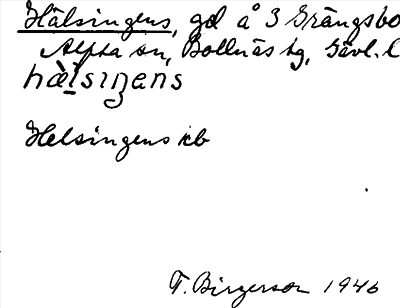 Hälsingens, gd å 3 Grängsbo
Alfta sn, Bollnäs tg, Gävl. l
hälsiŋens
Helsingens kb
T. Birgerson 1946